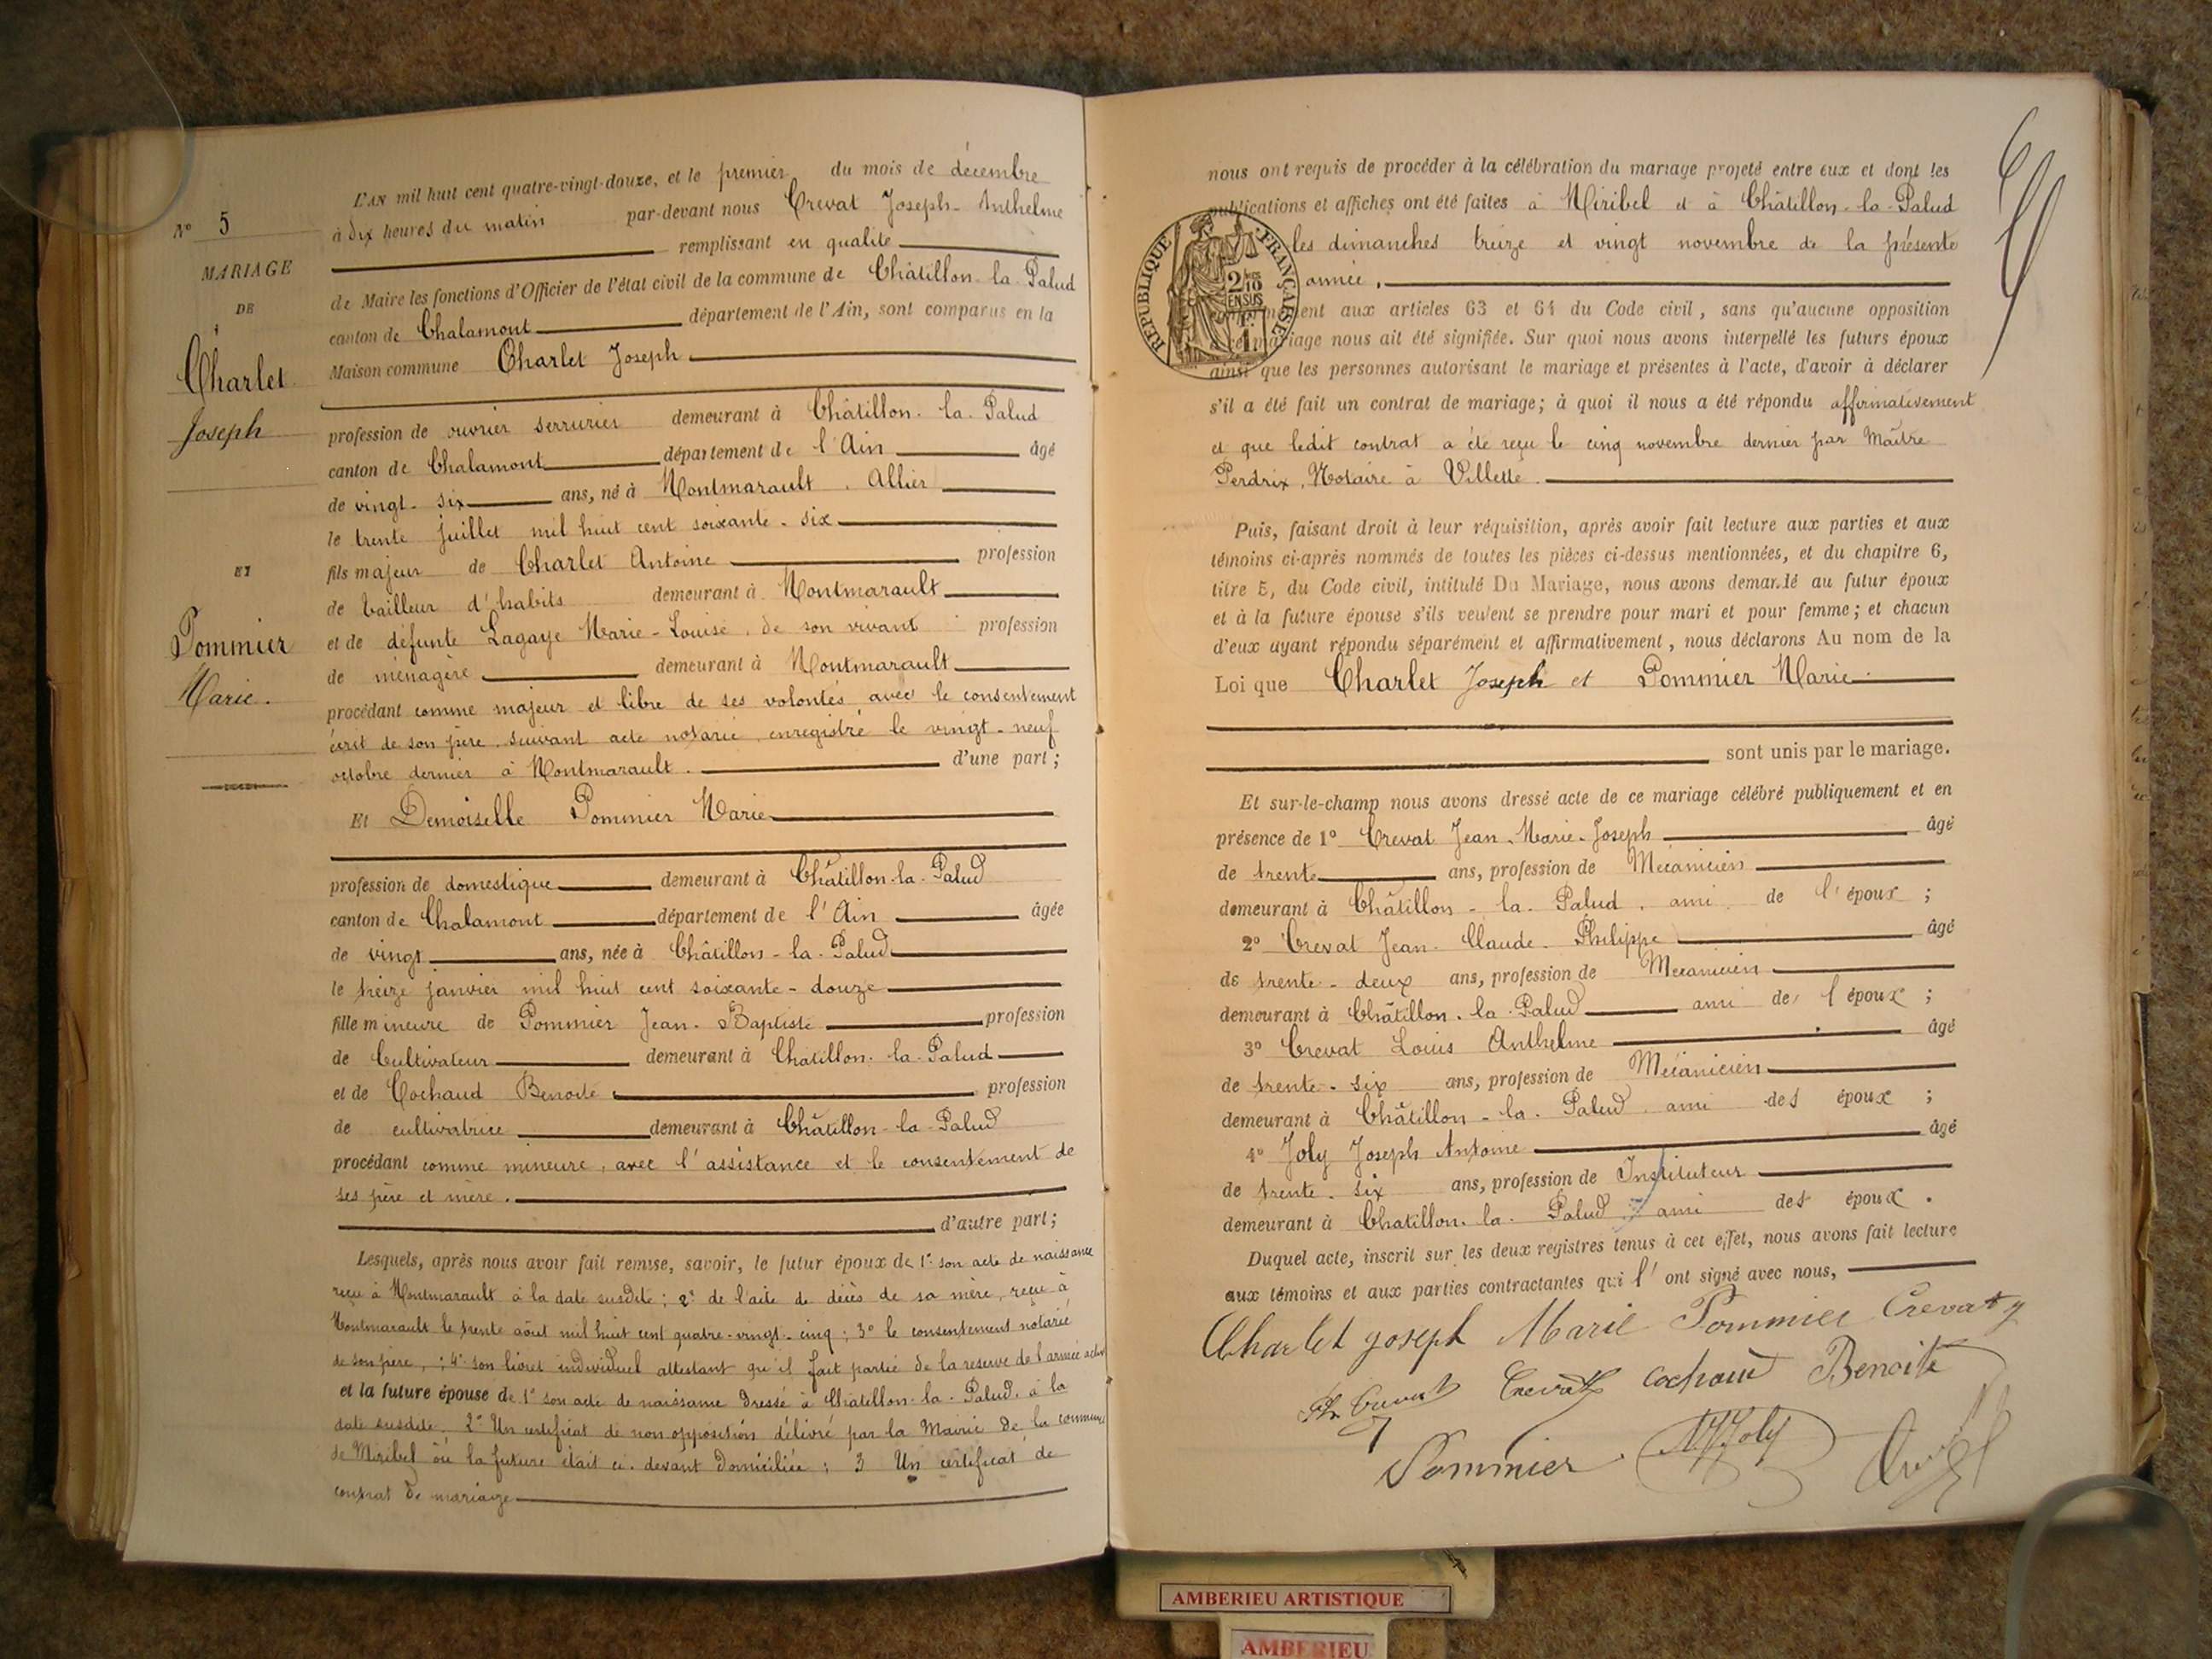 N° 5
MARIAGE
DE
Charlet
Joseph
ET
Pommier
Marie.
L'AN mil huit cent quatre-vingt-douze, et le premier du mois de décembre
à dix heures du matin par-devant nous Crevat Joseph-Anthelme
remplissant en qualité
de Maire les fonctions d'Officier de l'état civil de la commune de Châtillon-la-Palud
canton de Chalamont département de l'Ain, sont comparus en la
Maison commune Charlet Joseph
profession de ouvrier serrurier demeurant à Châtillon-la-Palud
canton de Chalamont département de l'Ain âgé
de vingt-six ans, né à Montmarault, Allier
le trente juillet mil huit cent soixante-six
fils majeur de Charlet Antoine profession
de tailleur d'habits demeurant à Montmarault
et de défunte Lagaye Marie-Louise, de son vivant profession
de ménagère demeurant à Montmarault
procédant comme majeur et libre de ses volontés avec le consentement
écrit de son père, suivant acte notarié, enregistré le vingt-neuf
octobre dernier à Montmarault. d'une part;
Et Demoiselle Pommier Marie
profession de domestique demeurant à Châtillon-la-Palud
canton de Chalamont département de l'Ain âgée
de vingt ans, née à Châtillon-la-Palud
le treize janvier mil huit cent soixante-douze
fille mineure de Pommier Jean-Baptiste profession
de Cultivateur demeurant à Chatillon-la-Palud
et de Cochaud Benoite profession
de cultivatrice demeurant à Châtillon-la-Palud
procédant comme mineure, avec l'assistance et le consentement de
ses père et mère.
d'autre part;
Lesquels, après nous avoir fait remise, savoir, le futur époux de 1° son acte de naissance
reçu à Montmarault à la date susdite; 2° de l'acte de décès de sa mère, reçu à
Montmarault le trente août mil huit cent quatre-vingt-cinq; 3° le consentement notarié
de son père,; 4° son livret individuel attestant qu'il fait partie de la réserve de l'armée active
et la future épouse de 1° son acte de naissance dressé à Châtillon-la-Palud, à la
date susdite. 2° Un certificat de non opposition délivré par la Mairie de la commune
de Miribel où la future était ci-devant domiciliée; 3 Un certificat de
contrat de mariage
nous ont requis de procéder à la célébration du mariage projeté entre eux et dont les
publications et affiches ont été faites à Miribel et à Châtillon-la-Palud
les dimanches treize et vingt novembre de la présente
année,
RÉPUBLIQUE FRANÇAISE
2/10
EN SUS
1
aux articles 63 et 64 du Code civil, sans qu'aucune opposition
à ce mariage nous ait été signifiée. Sur quoi nous avons interpellé les futurs époux
ainsi que les personnes autorisant le mariage et présentes à l'acte, d'avoir à déclarer
s'il a été fait un contrat de mariage; à quoi il nous a été répondu affirmativement
et que ledit contrat a été reçu le cinq novembre dernier par Maître
Perdrix, Notaire à Villette.
Puis, faisant droit à leur réquisition, après avoir fait lecture aux parties et aux
témoins ci-après nommés de toutes les pièces ci-dessus mentionnées, et du chapitre 6,
titre 5, du Code civil, intitulé Du Mariage, nous avons demandé au futur époux
et à la future épouse s'ils veulent se prendre pour mari et pour femme; et chacun
d'eux ayant répondu séparément et affirmativement, nous déclarons Au nom de la
Loi que Charlet Joseph et Pommier Marie
sont unis par le mariage.
Et sur-le-champ nous avons dressé acte de ce mariage célébré publiquement et en
présence de 1° Crevat Jean-Marie-Joseph âgé
de trente ans, profession de Mécanicien
demeurant à Châtillon-la-Palud, ami de l'époux;
2° Crevat Jean-Claude-Philippe âgé
de trente-deux ans, profession de Mécanicien
demeurant à Châtillon-la-Palud ami de l'époux;
3° Crevat Louis Anthelme âgé
de trente-six ans, profession de Mécanicien
demeurant à Châtillon-la-Palud ami des époux;
4° Joly Joseph Antoine âgé
de trente-six ans, profession de Instituteur
demeurant à Chatillon-la-Palud ami des époux.
Duquel acte, inscrit sur les deux registres tenus à cet effet, nous avons fait lecture
aux témoins et aux parties contractantes qui l'ont signé avec nous,
Charlet joseph Marie Pommier Crevat
Ph. Crevat Crevat Cochaud Benoite
Pommier Joly
AMBERIEU ARTISTIQUE
AMBERIEU